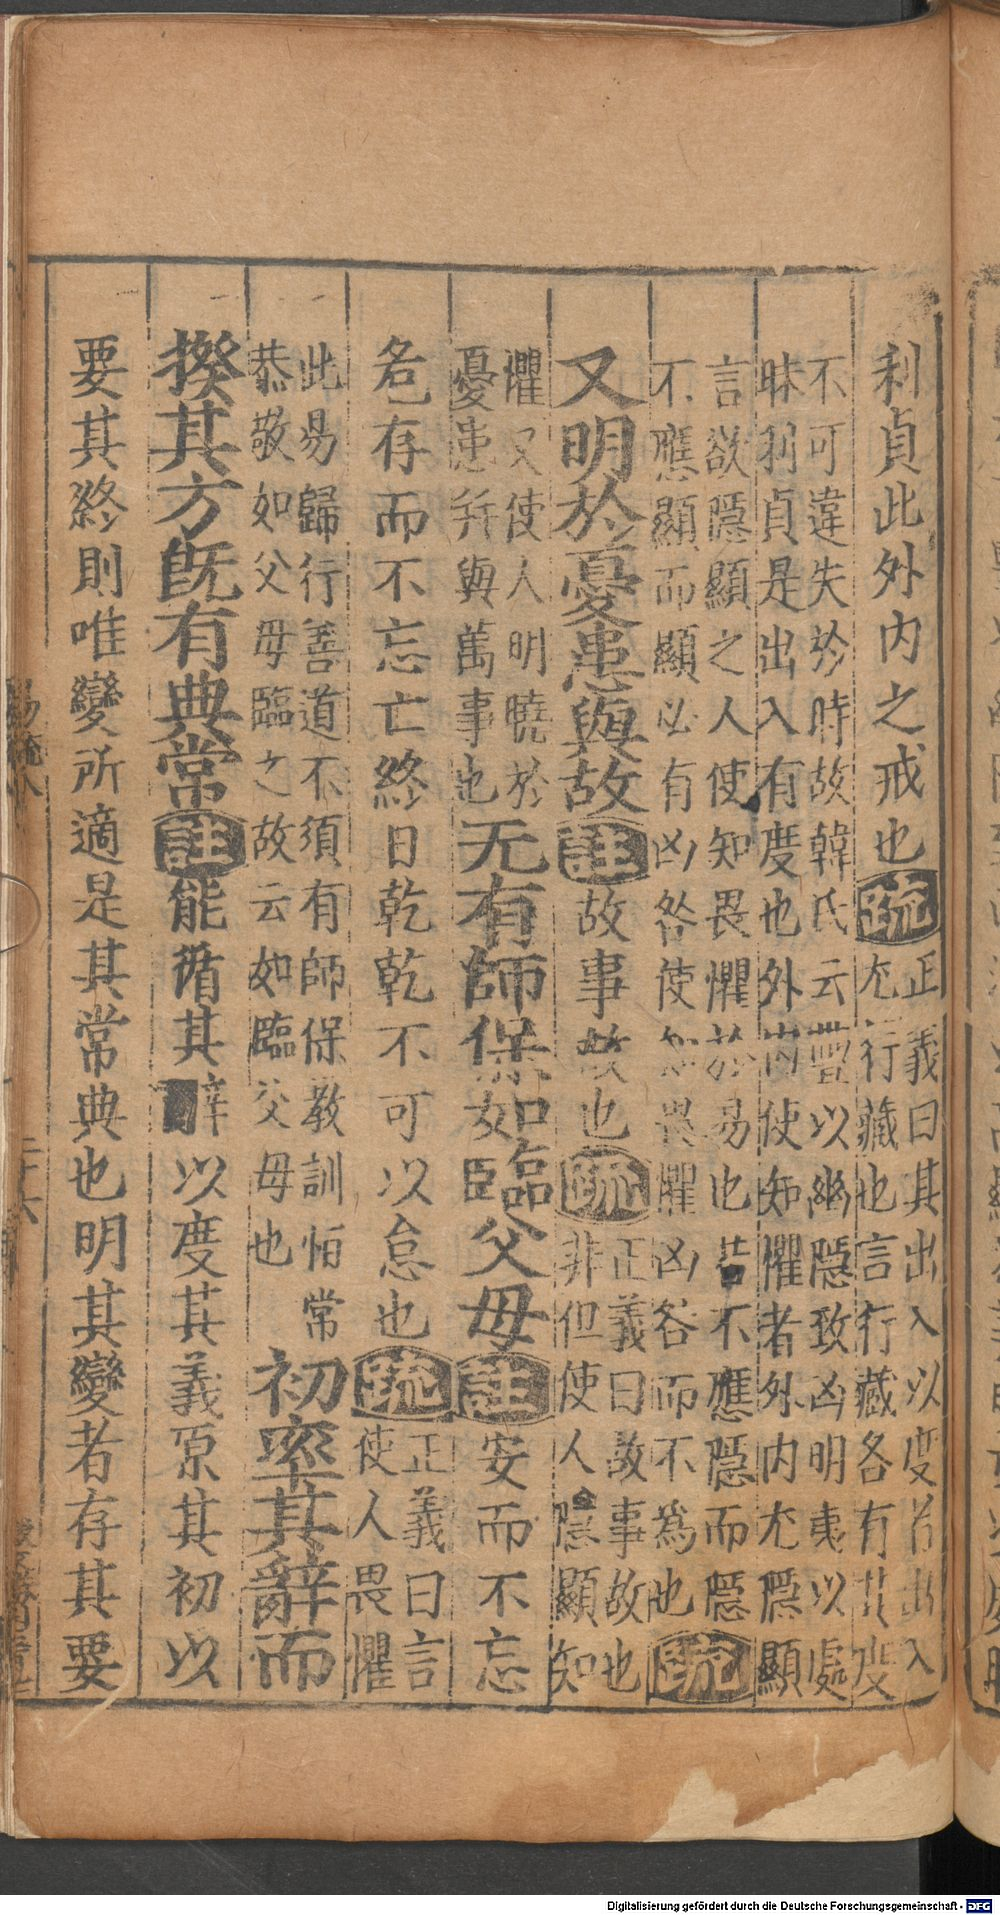 利貞此外内之戒也疏
正義曰其出入以度者出入
尤行藏也言行藏各有其度
不可違失於時故韓氏云豐以幽隱致凶明夷以處
昧利貞是出入有度也外内使知懼者外内尤隱顯
言欲隱顯之人使知畏懼於易也若不應隱而隱
不應顯而顯必有凶咎使知畏懼凶咎而不為也疏
又明於憂患與故註故事故也疏
正義曰故事故也
非但使人隱顯知
懼又使人明曉於
憂患并與萬事也
无有師保如臨父母註安而不忘
危存而不忘亡終日乾乾不可以怠也疏
正義曰言
使人畏懼
此易歸行善道不須有師保教訓怕常
恭敬如父母臨之故云如臨父母也
初率其辭而
揆其方既有典常註能循其辭以度其義原其初以
要其終則唯變所適是其常典也明其變者存其要
易疏八
二十六
Digitalisierung gefördert durch die Deutsche Forschungsgemeinschaft - DFG